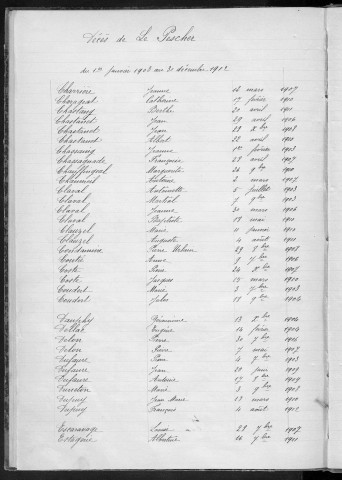 Décès de Le Pescher
du 1er janvier 1903 au 31 décembre 1912
Charriere Jeanne 16 mars 1907
Chazapial Catherine 17 février 1910
Chastang Berthe 20 avril 1911
Chastanet Jean 29 avril 1906
Chastanet Jean 28 Xbre 1908
Chastanet Albert 22 avril 1911
Chassaing Jeanne 1er février 1903
Françoise 28 avril 1907
Marguerite 26 9bre 1910
Chaumont Antoine 2 mars 1907
Claval Antoinette 5 juillet 1903
Claval Martial 7 9bre 1903
Claval Jeanne 30 mars 1906
Claval Baptiste 19 mai 1911
Clauzel Marie 11 janvier 1910
Clauzel Auguste 4 août 1911
Pierre 29 9bre 1907
Conte Anna 9 7bre 1906
Coste Pierre 24 Xbre 1907
Coste Jacques 15 mars 1910
Coudert Marie 3 7bre 1903
Coudert Jules 19 9bre 1904
Dauphy 13 Xbre 1904
Dellac Eugène 14 février 1904
Delon Pierre 30 7bre 1906
Delon Pierre 7 mai 1907
Dufaure Pierre 4 7bre 1903
Dufaure Jean 20 juin 1909
Dufaure Antoine 17 7bre 1909
Marie 3 9bre 1903
Dupuy Jean Marie 13 mars 1910
Dupuy François 4 août 1912
Escaravage 29 7bre 1907
Albertine 16 7bre 1911